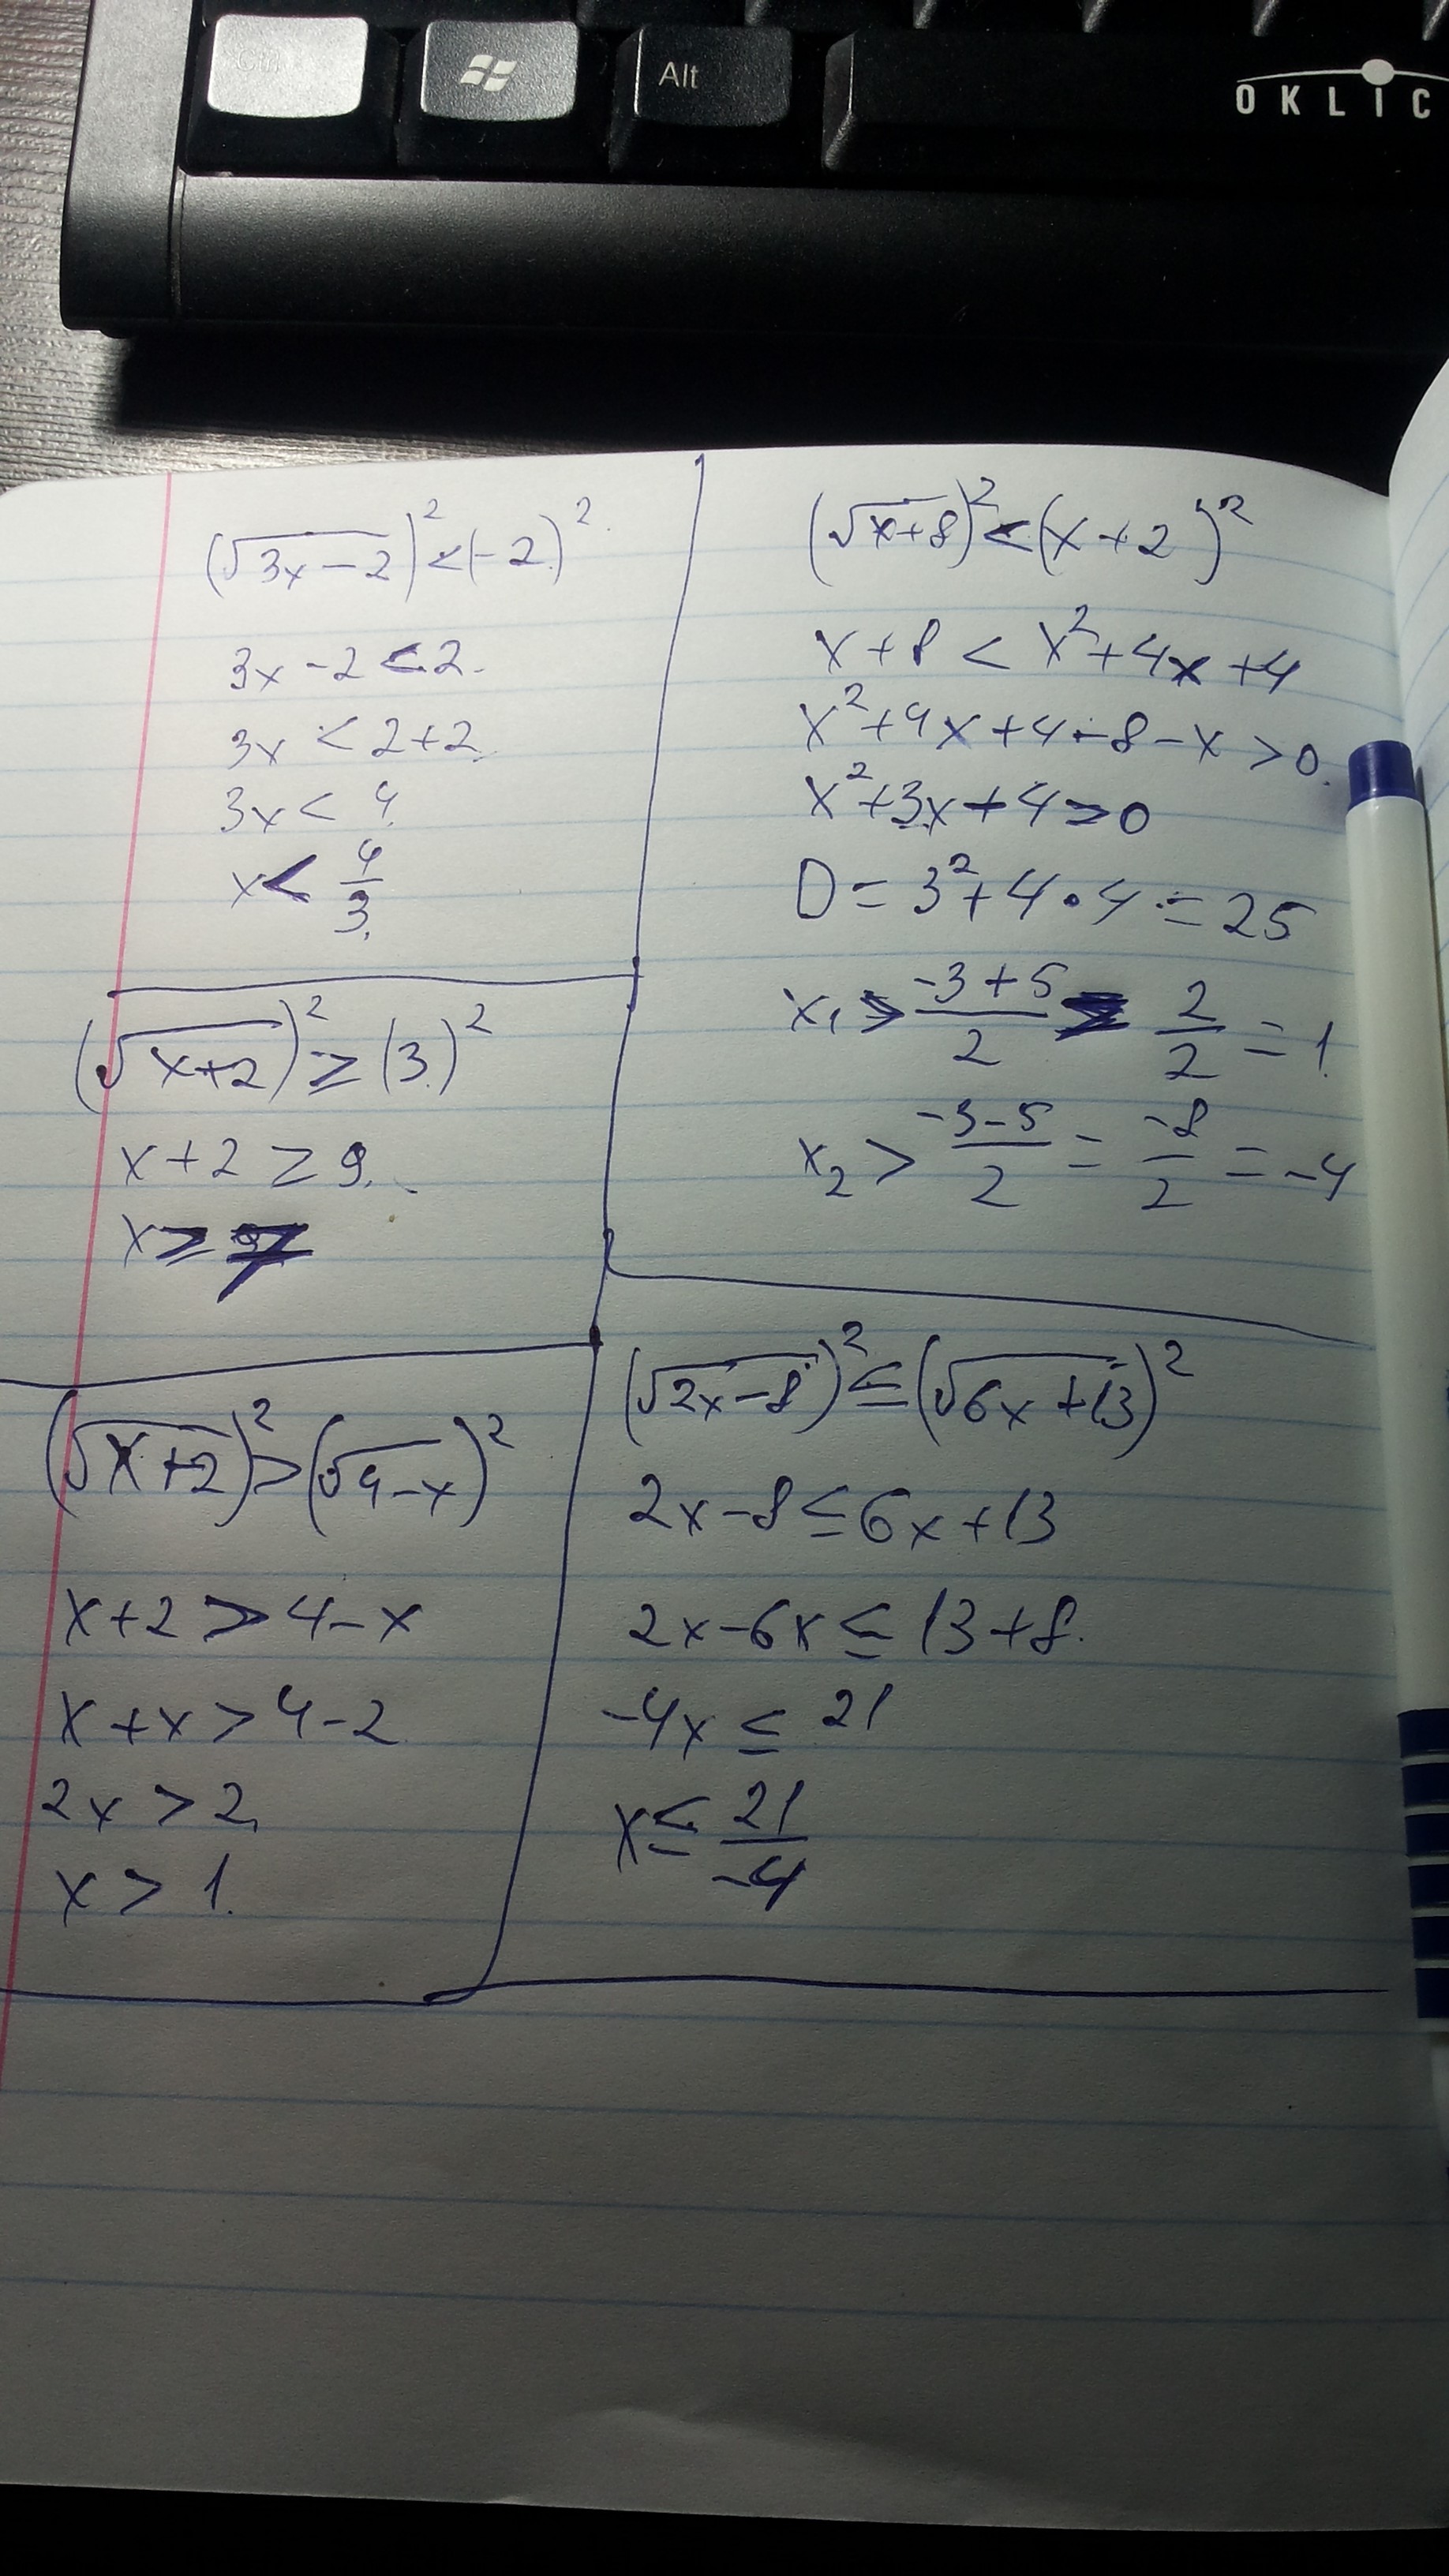 Ctrl
Alt
OKLIC
(√(3x-2))² < (-2)²
3x - 2 < 2.
3x < 2+2.
3x < 4
x < 4/3
(√(x+2))² ≥ (3)²
x + 2 ≥ 9.
x ≥ 7
(√(x+2))² > (√(4-x))²
x+2 > 4-x
x + x > 4-2
2x > 2
x > 1.
(√(x+8))² < (x+2)²
x + 8 < x² + 4x + 4
x² + 4x + 4 - 8 - x > 0.
x² + 3x + 4 > 0
D = 3² + 4 · 4 = 25
x₁ > (-3+5)/2 = 2/2 = 1
x₂ > (-3-5)/2 = -8/2 = -4
(√(2x-8))² ≤ (√(6x+13))²
2x - 8 ≤ 6x + 13
2x - 6x ≤ 13 + 8.
-4x ≤ 21
x ≤ 21/-4